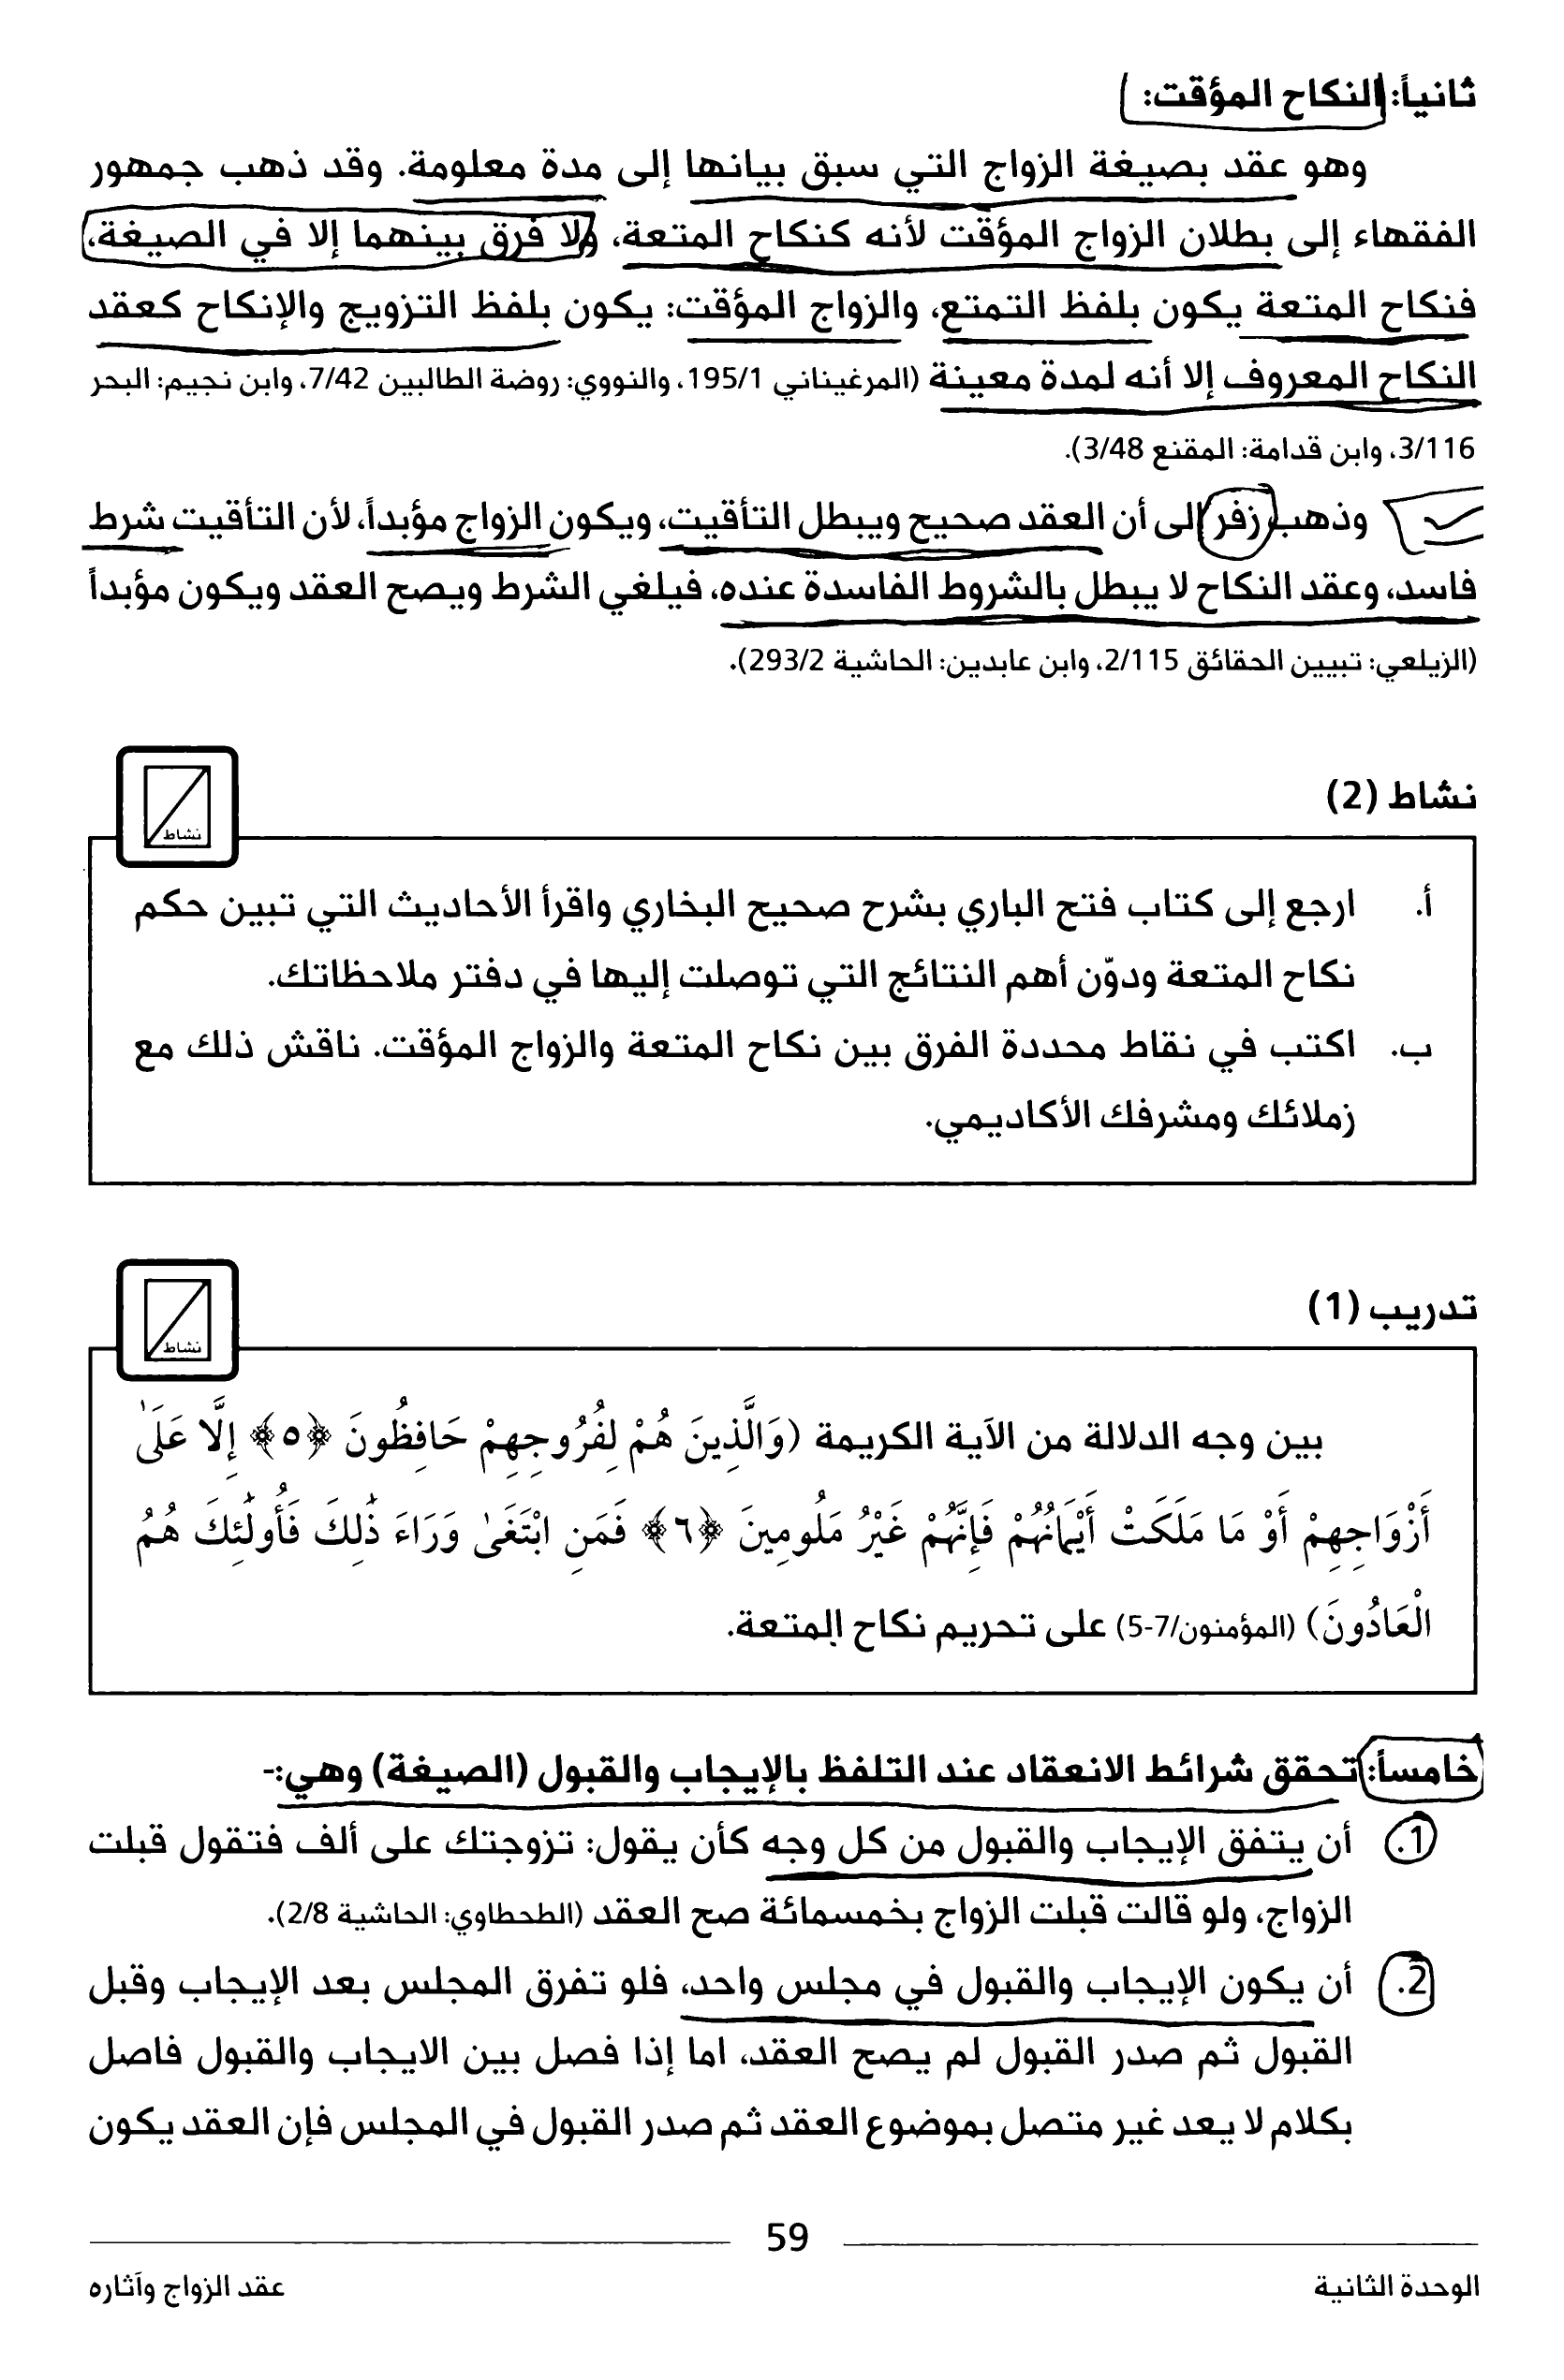 ثانياً: النكاح المؤقت:
وهو عقد بصيغة الزواج التي سبق بيانها إلى مدة معلومة. وقد ذهب جمهور
الفقهاء إلى بطلان الزواج المؤقت لأنه كنكاح المتعة، ولا فرق بينهما إلا في الصيغة،
فنكاح المتعة يكون بلفظ التمتع، والزواج المؤقت: يكون بلفظ التزويج والإنكاح كعقد
النكاح المعروف إلا أنه لمدة معينة (المرغيناني 195/1، والنووي: روضة الطالبين 7/42، وابن نجيم: البحر
3/116، وابن قدامة: المقنع 3/48).
وذهب زفر إلى أن العقد صحيح ويبطل التأقيت، ويكون الزواج مؤبداً، لأن التأقيت شرط
فاسد، وعقد النكاح لا يبطل بالشروط الفاسدة عنده، فيلغي الشرط ويصح العقد ويكون مؤبداً
(الزيلعي: تبيين الحقائق 2/115، وابن عابدين: الحاشية 293/2).
نشاط (2)
نشاط
أ. ارجع إلى كتاب فتح الباري بشرح صحيح البخاري واقرأ الأحاديث التي تبين حكم
نكاح المتعة ودوّن أهم النتائج التي توصلت إليها في دفتر ملاحظاتك.
ب. اكتب في نقاط محددة الفرق بين نكاح المتعة والزواج المؤقت. ناقش ذلك مع
زملائك ومشرفك الأكاديمي.
تدريب (1)
نشاط
بين وجه الدلالة من الآية الكريمة (وَالَّذِينَ هُمْ لِفُرُوجِهِمْ حَافِظُونَ ﴿٥﴾ إِلَّا عَلَىٰ
أَزْوَاجِهِمْ أَوْ مَا مَلَكَتْ أَيْمَانُهُمْ فَإِنَّهُمْ غَيْرُ مَلُومِينَ ﴿٦﴾ فَمَنِ ابْتَغَىٰ وَرَاءَ ذَٰلِكَ فَأُولَٰئِكَ هُمُ
الْعَادُونَ) (المؤمنون/7-5) على تحريم نكاح المتعة.
خامساً: تحقق شرائط الانعقاد عند التلفظ بالإيجاب والقبول (الصيغة) وهي:-
1. أن يتفق الإيجاب والقبول من كل وجه كأن يقول: تزوجتك على ألف فتقول قبلت
الزواج، ولو قالت قبلت الزواج بخمسمائة صح العقد (الطحطاوي: الحاشية 2/8).
2. أن يكون الإيجاب والقبول في مجلس واحد، فلو تفرق المجلس بعد الإيجاب وقبل
القبول ثم صدر القبول لم يصح العقد، اما إذا فصل بين الايجاب والقبول فاصل
بكلام لا يعد غير متصل بموضوع العقد ثم صدر القبول في المجلس فإن العقد يكون
59
الوحدة الثانية
عقد الزواج وآثاره